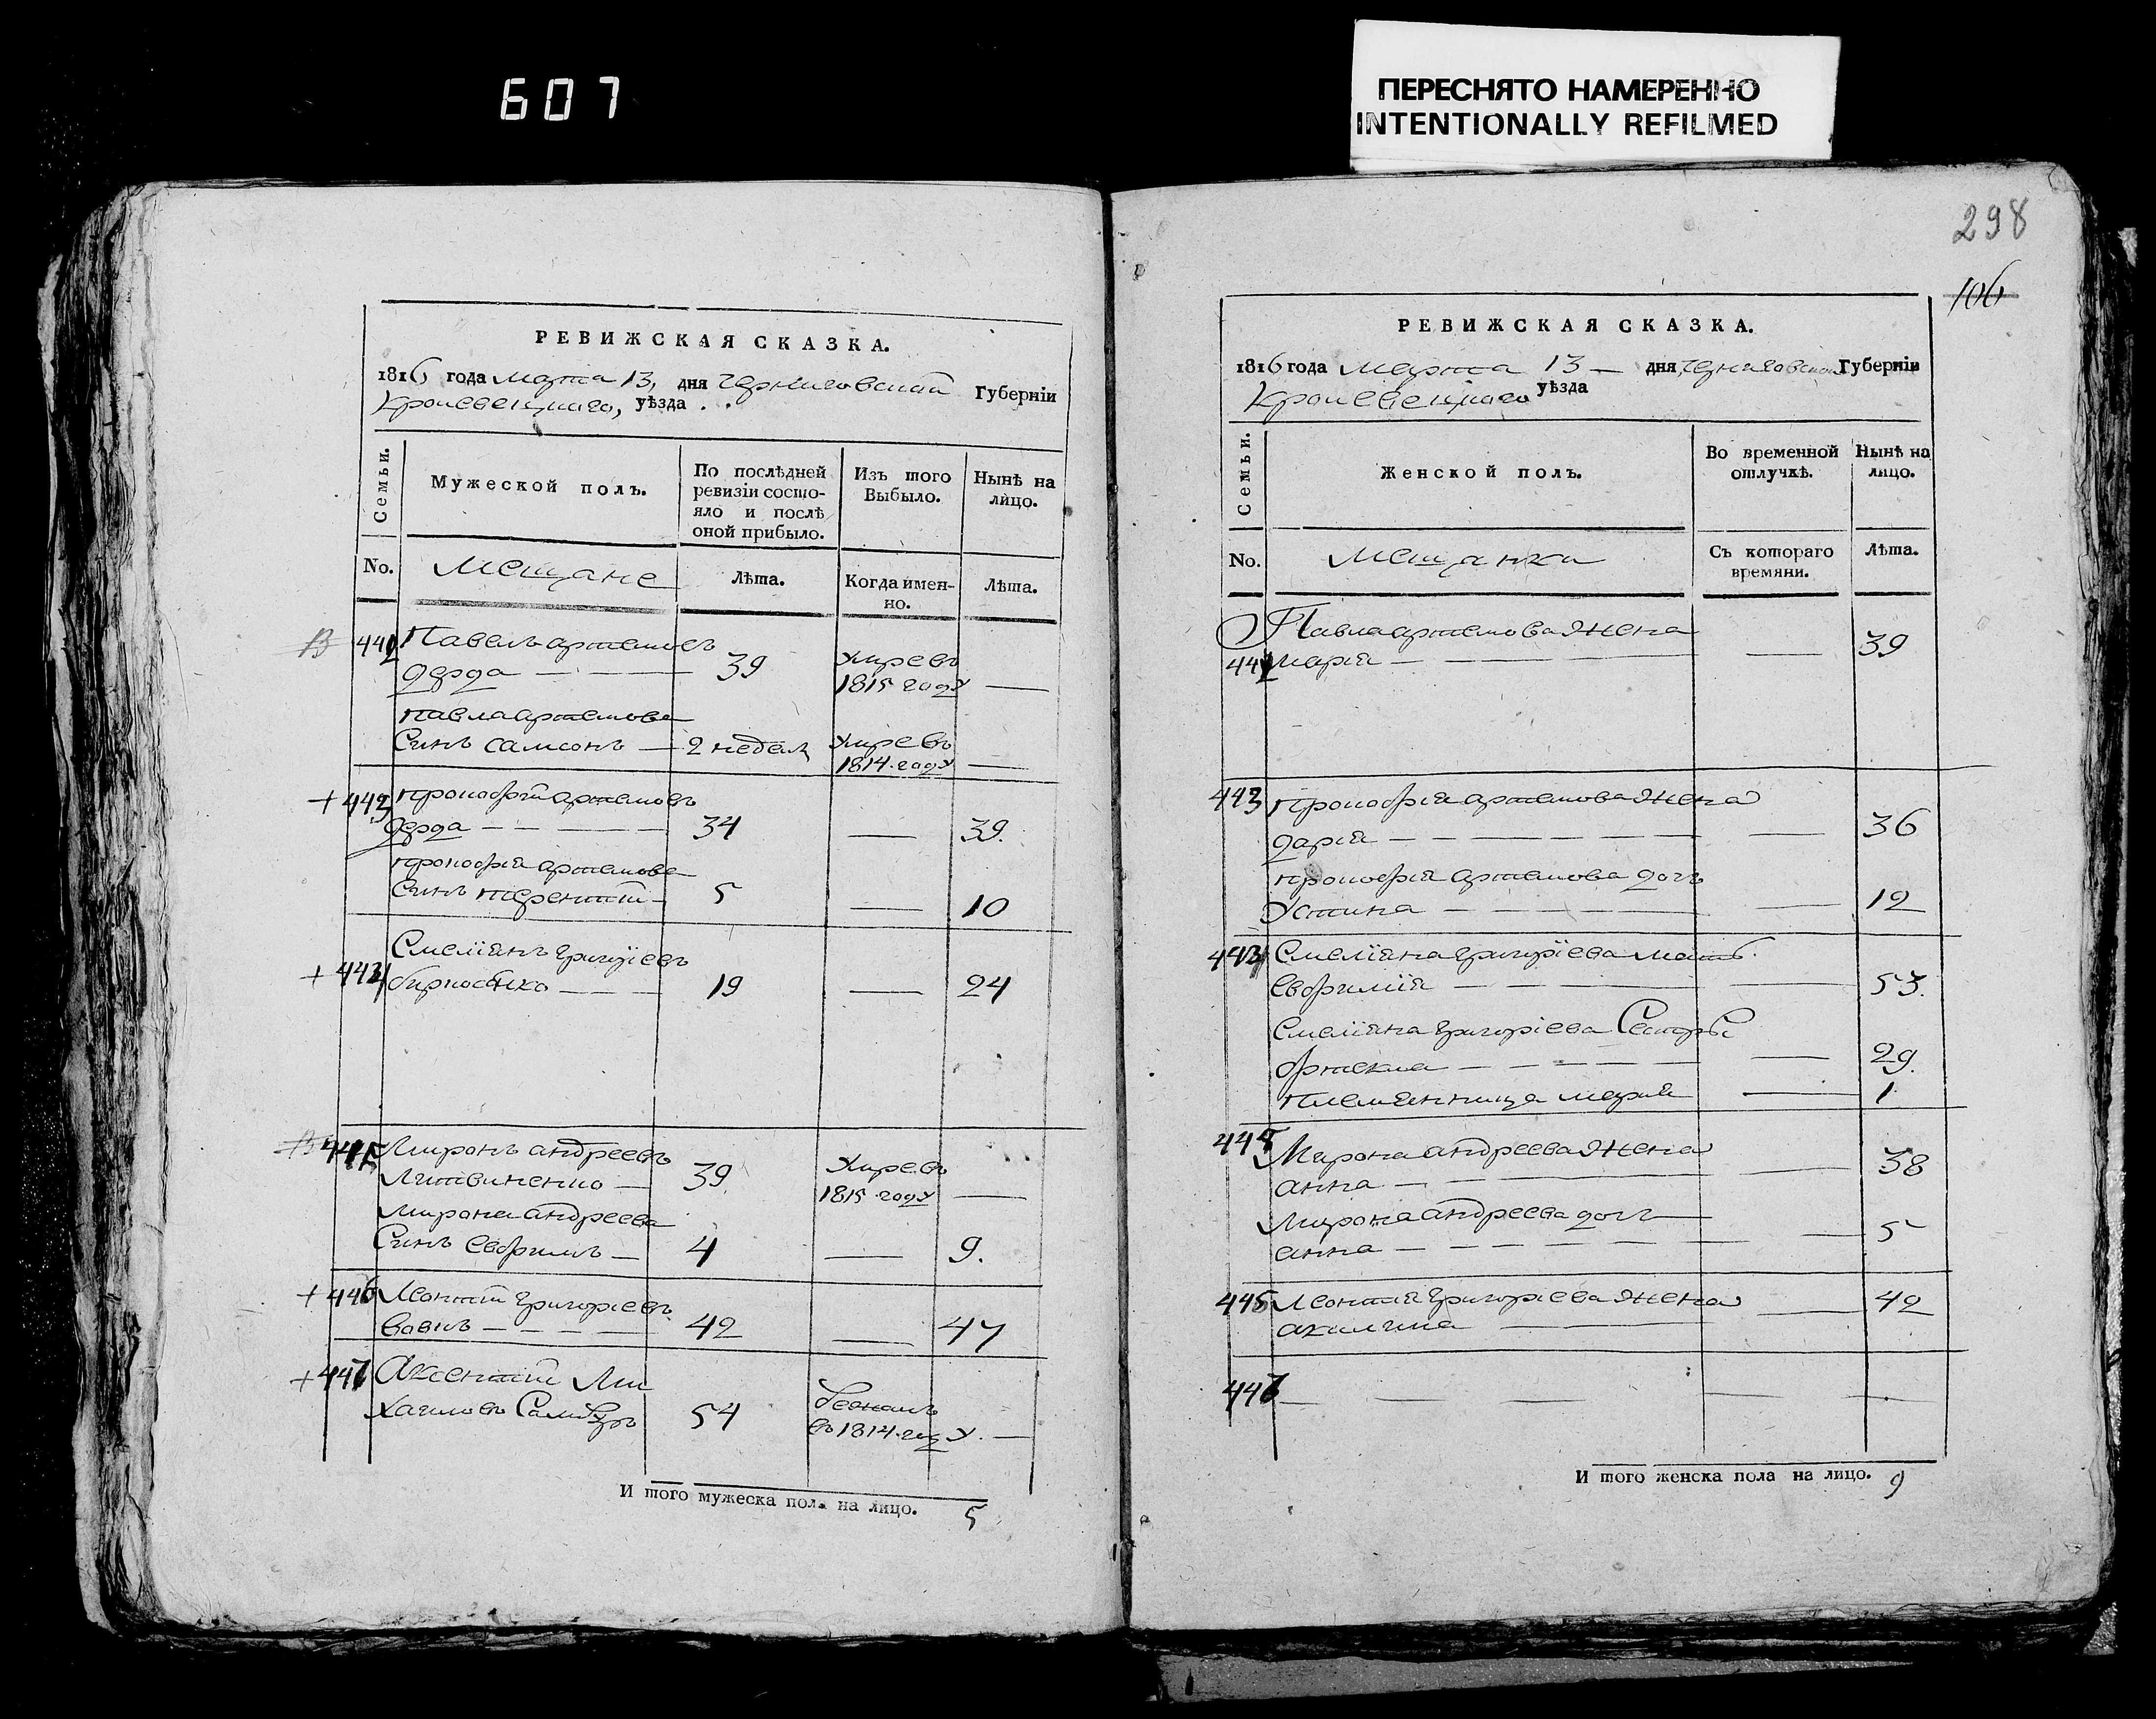 607
ПЕРЕСНЯТО НАМЕРЕННО
INTENTIONALLY REFILMED
РЕВИЖСКАЯ СКАЗКА.
1816 года марта 13, дня черниговской Губерніи
Кролевецкаго, уѣзда
Семьи.
Мужеской полъ.
По послѣдней
ревизіи состо-
яло и послѣ
оной прибыло.
Изъ того
Выбыло.
Нынѣ на
лицо.
No.
Мещане
Лѣта.
Когда имен-
но.
Лѣта.
442 Павелъ артемовъ
дерда 39 Умре въ
1815 году
павла артемова
Синъ самсонъ 2 недел Умре въ
1814 году
+ 443 прокофій артемовъ
дерда 34 39.
прокофія артемова
Синъ терентій 5 10
+ 444 Емеліянъ григоріевъ
19 24
445 Миронъ андреевъ
Литвиненко 39 Умре въ
1815 году
Мирона андреева
Синъ Евфимъ 4 9.
+ 446 Леонтій григоріевъ
вовкъ 42 47
+ 447 Аксентій Ми
хаиловъ 54
въ 1814 году.
И того мужеска пола на лицо. 5
298
106
РЕВИЖСКАЯ СКАЗКА.
1816 года марта 13 дня черниговской Губерніи
Кролевецкаго уѣзда
Семьи.
Женской полъ.
Во временной
отлучкѣ.
Нынѣ на
лицо.
No.
мещанки
Съ котораго
времяни.
Лѣта.
Павла артемова жена
442 марія 39
443 прокофія артемова жена
дарія 36
прокофія артемова дочь
Устина 12
444 Емеліяна григоріева мать
Евфимія 53.
Емеліяна григоріева Сестра
фтекла 29.
племянница марія 1
445 Мирона андреева жена
анна 38
Мирона андреева дочь
анна 5
446 Леонтія григоріева жена
акилина 42
447
И того женска пола на лицо. 9